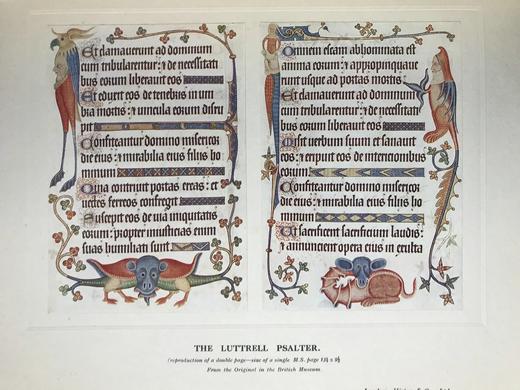 Et clamauerunt ad dominum
cum tribularentur: ⁊ de necessitati
bus eorum liberauit eos
Et eduxit eos de tenebris in um
bra mortis: ⁊ uincula eorum disru
pit
Confiteantur domino misericor
die eius: ⁊ mirabilia eius filiis ho
minum
Quia contriuit portas ereas: et
uectes ferreos confregit
Suscepit eos de uia iniquitatis
eorum: propter iniusticias enim
suas humiliati sunt
Omnem escam abhominata est
anima eorum: ⁊ appropinquaue
runt usque ad portas mortis
Et clamauerunt ad dominum
cum tribularentur: ⁊ de necessitati
bus eorum liberauit eos
Misit uerbum suum et sanauit
eos: ⁊ eripuit eos de interitionibus
eorum
Confiteantur domino misericor
die eius: ⁊ mirabilia eius filiis ho
minum
Ut sacrificent sacrificium laudis:
⁊ annuncient opera eius in exulta
THE LUTTRELL PSALTER.
(reproduction of a double page—size of a single M.S. page
From the Original in the British Museum.